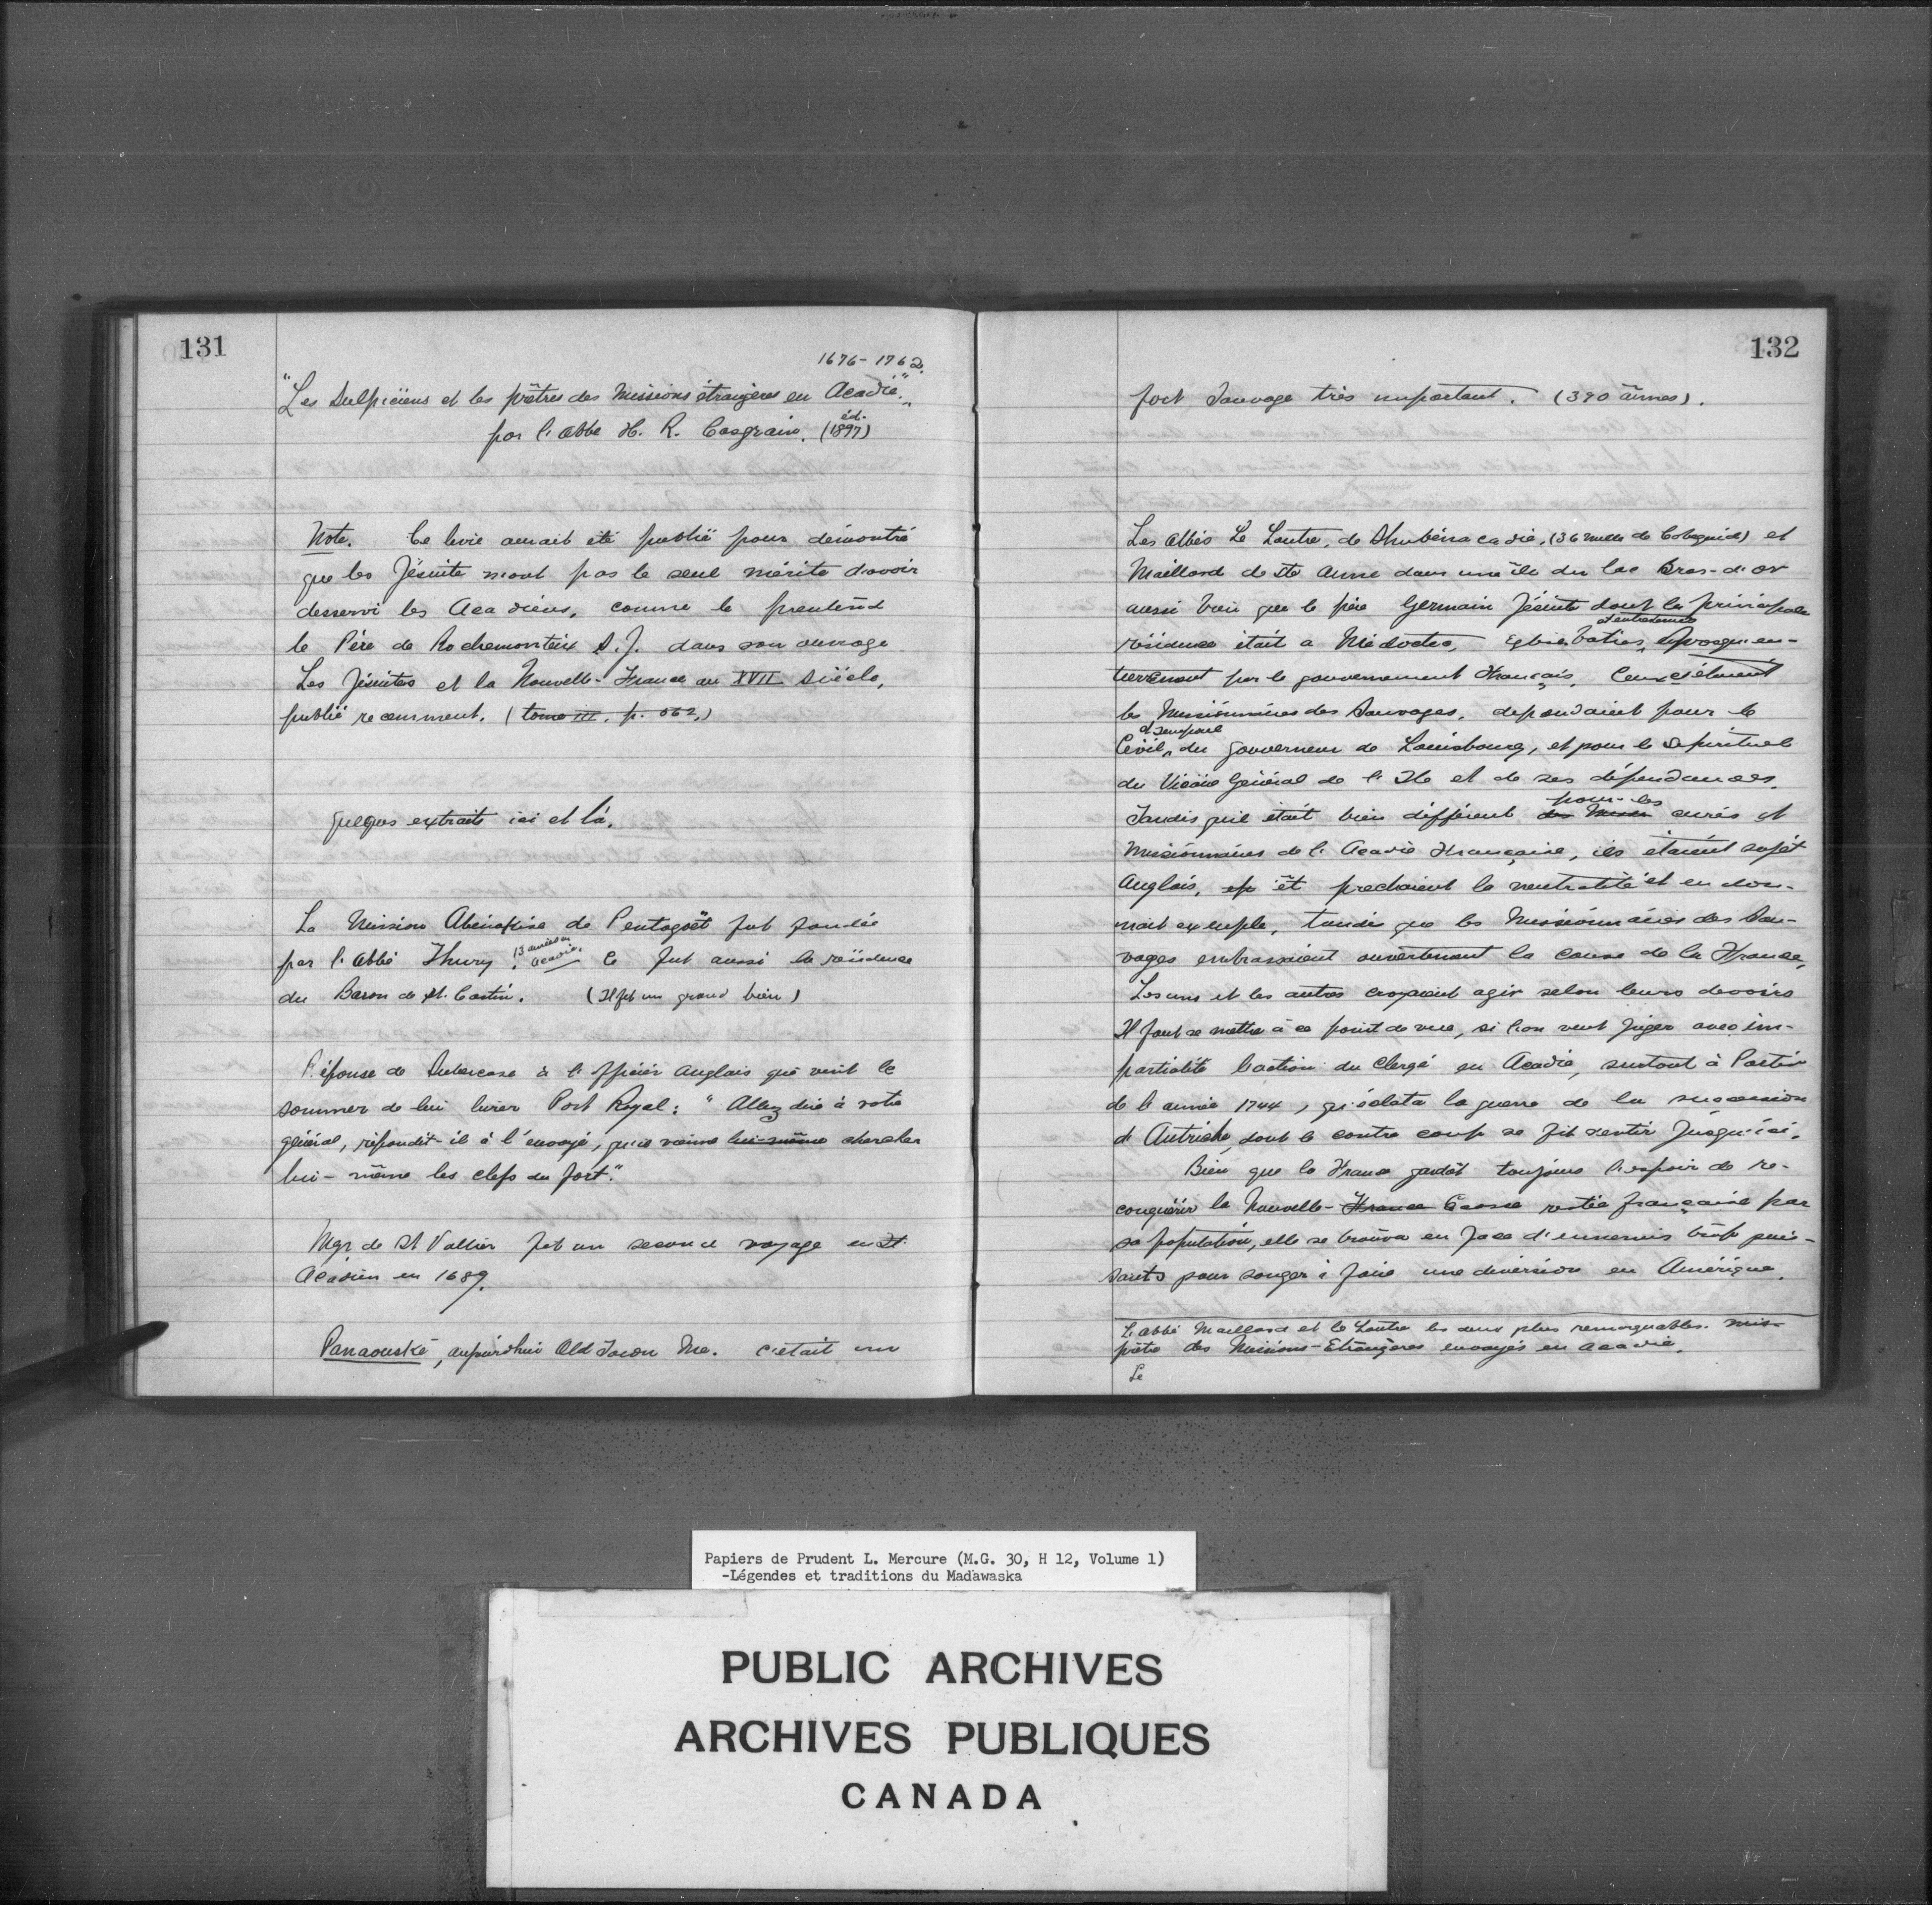 131
1676-1762.
"Les Sulpiciens et les prêtres des Missions étrangères en Acadie."
par l'abbé H. R. Casgrain. (éd. 1897)
Note. Ce livre aurait été publié pour démontré
que les Jésuite n'ont pas le seul mérite d'avoir
desservi les Acadiens, comme le prentend
le Père de Rochemonteix S.J. dans son ouvrage
Les Jésuites et la Nouvelle-France au XVII Siècle,
publié recemment. (tome III. p. 362.)
quelques extraits ici et là.
La Mission Abénakise de Pentagoët fut fondée
par l'Abbé Thury. 13 années en Acadie. Ce fut aussi la résidence
du Baron de St. Castin. (Il fit un grand bien)
Réponse de Subercase à l'officier Anglais qui vint le
sommer de lui livrer Port Royal: "Allez dire à votre
général, répondit-il à l'envoyé, qu'il vienne lui-même chercher
lui-même les clefs du fort."
Mgr de St Vallier fit un second voyage en St
Acadien en 1689.
Panaouské, aujourd'hui Old Town Me. c'était un
132
fort Sauvage très important. (390 âmes).
Les Abbés Le Loutre, de Shubénacadie, (36 milles de Cobequid) et
Maillard de Ste Anne dans une île du lac Bras-d'or
aussi bien que le père Germain Jésuite dont la principale
résidence était a Médoctec, Eglise baties, et entretenues presqu'en-
tierrement par le gouvernement Français. Ceux
les Missionnaires des Sauvages, dependaient pour le
Civil, et temporel du gouverneur de Louisbourg, et pour le Spirituel
du Vicaire Général de l'Ile et de ses dépendances.
Tandis qu'il était bien différent des pour les curés et
Missionnaires de l'Acadie Française, ils étaient sujet
Anglais, et prechaient la neutralité et en don-
nait exemple, tandis que les Missionnaires des Sau-
vages embrassaient ouvertement la cause de la France,
Les uns et les autres croyaient agir selon leurs devoirs
Il faut se mettre à ce point de vue, si l'on veut juger avec im-
partialité l'action du Clergé en Acadie, surtout à Partir
de l'année 1744, qu'éclata la guerre de la succession
d'Autriche, dont le contre coup se fit sentir jusqu'ici.
Bien que la France gardât toujours l'espoir de re-
conquérir la Nouvelle-France Ecosse restée française par
sa population, elle se trouva en face d'ennemis trop puis-
sants pour songer à faire une diversion en Amérique.
L'abbé Maillard et le Loutre les deux plus remarquables. mis-
prêtre des Missions-Etrangères envoyés en Acadie.
Le
Papiers de Prudent L. Mercure (M.G. 30, H 12, Volume 1)
-Légendes et traditions du Madawaska
PUBLIC ARCHIVES
ARCHIVES PUBLIQUES
CANADA